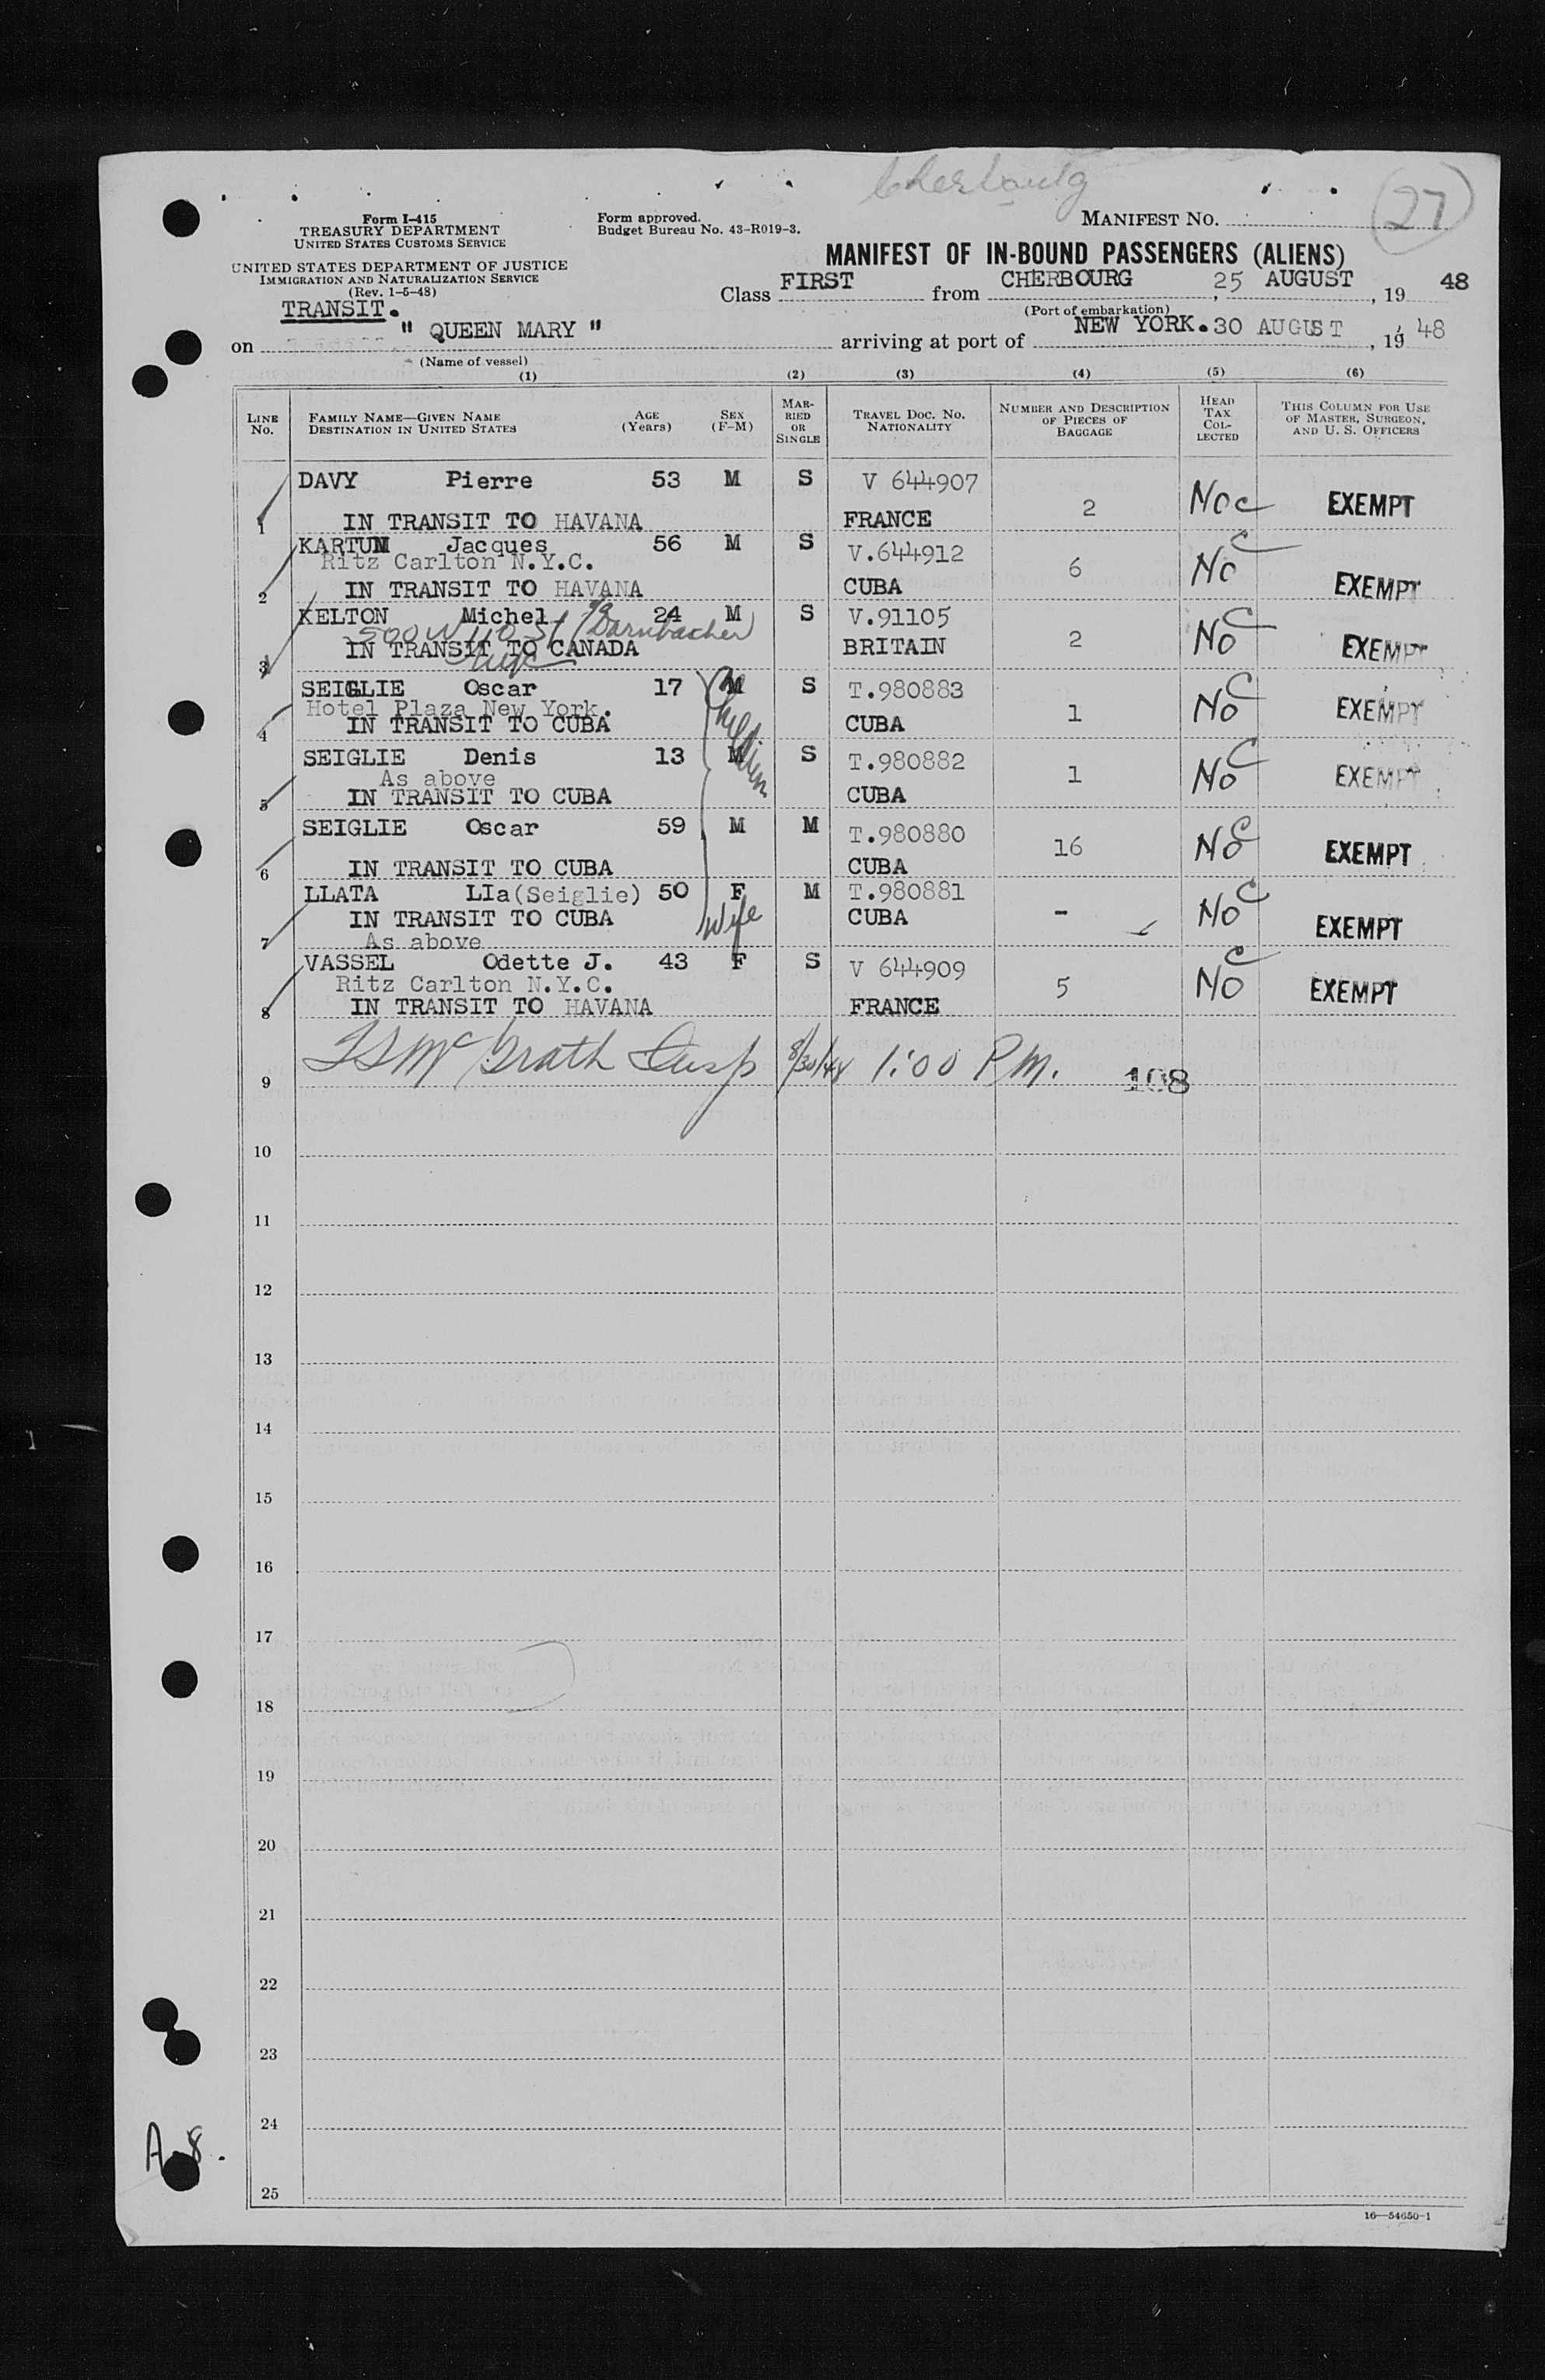 Cherbourg
27
Form I-415
TREASURY DEPARTMENT
UNITED STATES CUSTOMS SERVICE
Form approved.
Budget Bureau No. 43-R019-3.
MANIFEST NO.
UNITED STATES DEPARTMENT OF JUSTICE
IMMIGRATION AND NATURALIZATION SERVICE
(Rev. 1-5-48)
MANIFEST OF IN-BOUND PASSENGERS (ALIENS)
Class FIRST from CHERBOURG, 25 AUGUST, 19 48
(Port of embarkation)
TRANSIT.
on " QUEEN MARY " arriving at port of NEW YORK. 30 AUGUST, 19 48
(Name of vessel)
(1) (2) (3) (4) (5) (6)
LINE No. FAMILY NAME—GIVEN NAME DESTINATION IN UNITED STATES AGE (Years) SEX (F-M) MARRIED OR SINGLE TRAVEL DOC. NO. NATIONALITY NUMBER AND DESCRIPTION OF PIECES OF BAGGAGE HEAD TAX COLLECTED THIS COLUMN FOR USE OF MASTER, SURGEON, AND U. S. OFFICERS
DAVY Pierre 53 M S V 644907
2 Noc EXEMPT
1 IN TRANSIT TO HAVANA FRANCE
KARTUN Jacques 56 M S V.644912
Ritz Carlton N.Y.C. 6 Noc
2 IN TRANSIT TO HAVANA CUBA EXEMPT
KELTON Michel 24 M S V.91105
500 W 110 St c/o Darnbacher
3 IN TRANSIT TO CANADA BRITAIN 2 Noc EXEMPT
NYC
SEIGLIE Oscar 17 M S T.980883
Hotel Plaza New York. 1 Noc EXEMPT
4 IN TRANSIT TO CUBA CUBA
Children
SEIGLIE Denis 13 M S T.980882
As above 1 Noc EXEMPT
5 IN TRANSIT TO CUBA CUBA
SEIGLIE Oscar 59 M M T.980880
16 Noc EXEMPT
6 IN TRANSIT TO CUBA CUBA
LLATA LIa(Seiglie) 50 F M T.980881
IN TRANSIT TO CUBA Wife CUBA - Noc EXEMPT
7 As above
VASSEL Odette J. 43 F S V 644909
Ritz Carlton N.Y.C. 5 Noc EXEMPT
8 IN TRANSIT TO HAVANA FRANCE
McGrath Insp 8/30/48 1:00 P.M. 108
9
10
11
12
13
14
15
16
17
18
19
20
21
22
23
24
25
A-8.
16—54650-1